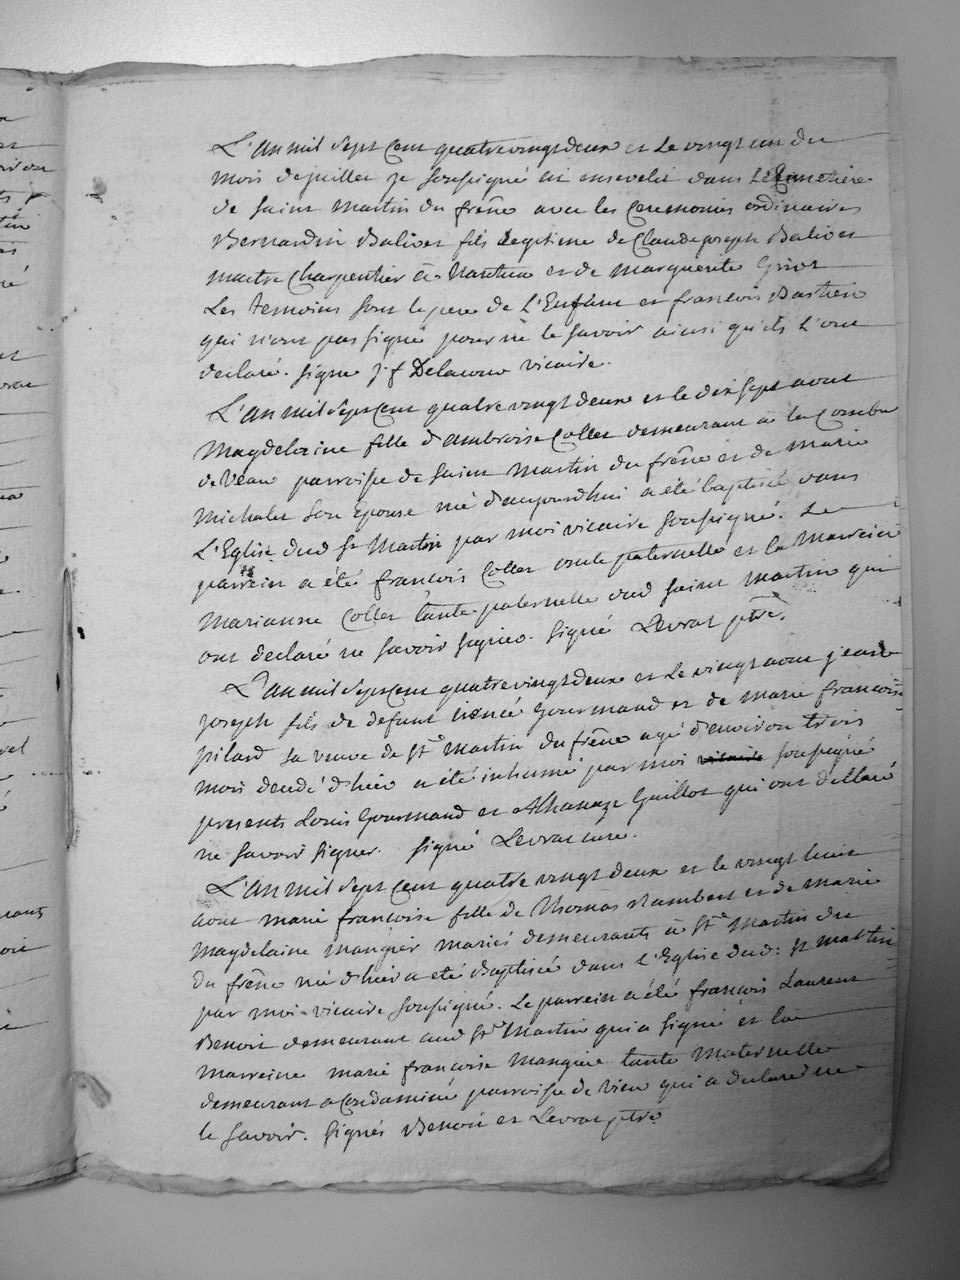 L'an mil sept cent quatre vingt deux et le vingt un du
mois de juillet je soussigné ai enseveli dans le Cimetiere
de saint martin du frêne avec les Ceremonies ordinaires
Bernardin Balivet fils legitime de Claude joseph Balivet
maitre charpentier à Nantua et de marguerite Griot
Les temoins sont le pere de L'Enfant et francois Bastien
qui n'ont pas signé pour ne le savoir ainsi qu'ils l'ont
declaré. signé j f Delacour vicaire.
L'an mil sept cent quatre vingt deux et le dix sept aout
Magdelaine fille d'ambroise Collet demeurant à la Combe
de Veau parroisse de saint Martin du frêne et de marie
Michalet son epouse né d'aujourdhui a été baptisé dans
L'Eglise dud st Martin par moi vicaire soussigné. Le
parrein a été françois Collet oncle paternelle et la Marreine
Marianne Collet tante paternelle dud saint martin qui
ont declaré ne savoir signer. Signé Levrat ptre.
L'an mil sept cent quatre vingt deux et le vingt aout jean
joseph fils de defunt Gourmand et de marie francoise
pilard sa veuve de st Martin du frêne agé d'environ trois
mois decedé d'hier a été inhumé par moi soussigné
presents Louis Gourmand et Athanaze Guillot qui ont declaré
ne savoir signer. signé Levrat cure.
L'an mil sept cent quatre vingt deux et le vingt huit
aout marie francoise fille de Thomas Rambert et de marie
Magdelaine mangier mariés demeurants à st Martin du
du frêne né d'hier a été Baptisée dans L'Eglise dud: st martin
par moi vicaire soussigné. Le parrein a été francois Laurent
Benoit demeurant aud st Martin qui a signé et la
Marreine marie francoise Mangier tante Maternelle
demeurant a Condamine parroisse de vieu qui a declaré ne
le savoir. Signés Benoit et Levrat ptre